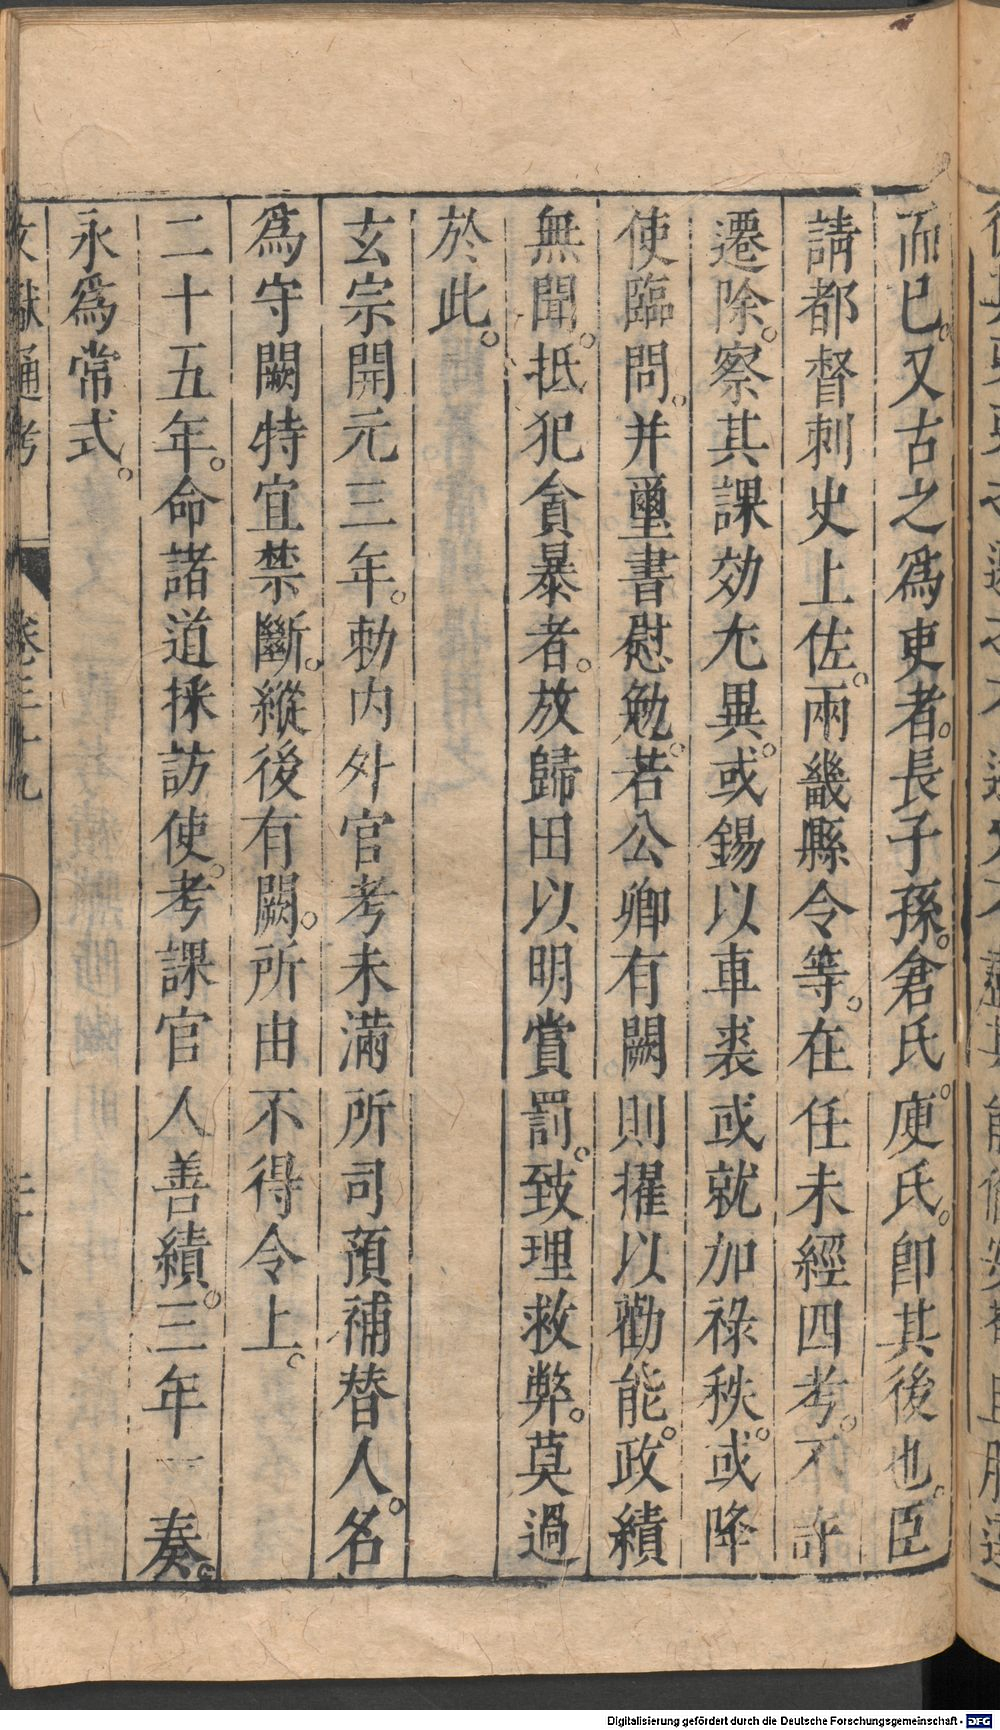 而已。又古之爲吏者。長子孫。倉氏。庾氏。卽其後也。臣
請都督刺史上佐。兩畿縣令等。在任未經四考。不許
遷除。察其課効尤異。或錫以車裘或就加祿秩。或降
使臨問。并璽書慰勉。若公卿有闕則擢以勸能。政績
無聞。抵犯貪暴者。放歸田以明賞罰。致理救弊。莫過
於此。
玄宗開元三年。勅内外官考未滿所司預補替人。名
爲守闕特宜禁斷。縱後有闕。所由不得令上。
二十五年。命諸道採訪使。考課官人善績。三年一奏。
永爲常式。
文獻通考 卷三十九
Digitalisierung gefördert durch die Deutsche Forschungsgemeinschaft - DFG